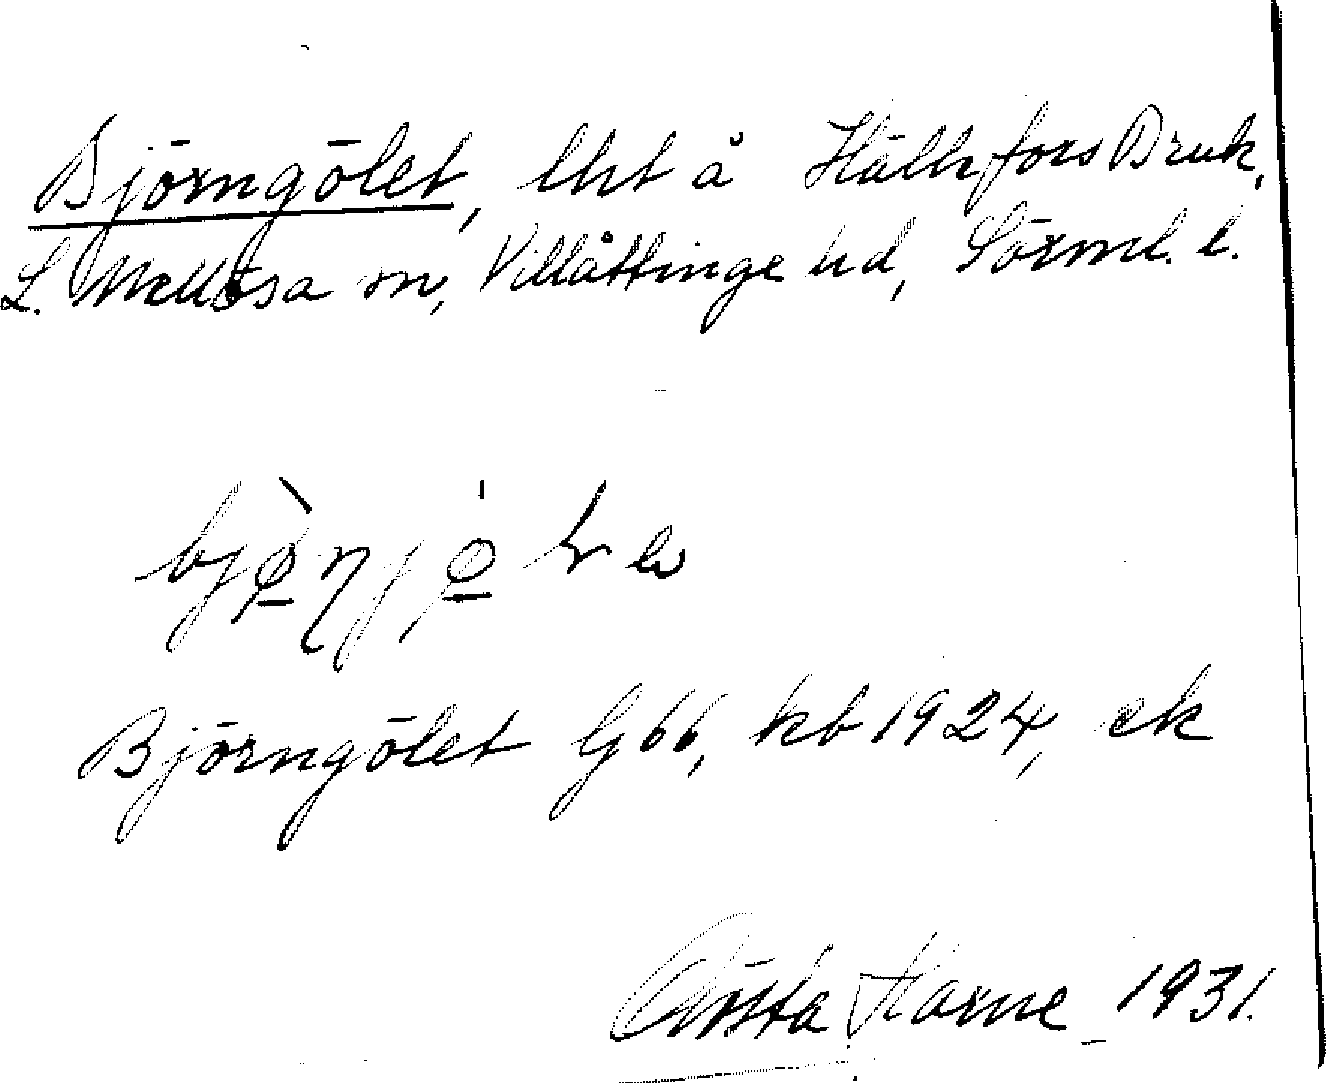 Björngölet, lht å Hälleforsbruk,
L. Mellösa sn, Villåttinge hd, Sörml. l.
Björngölet G 66, kb 1924, ek
Gösta Harne 1931.